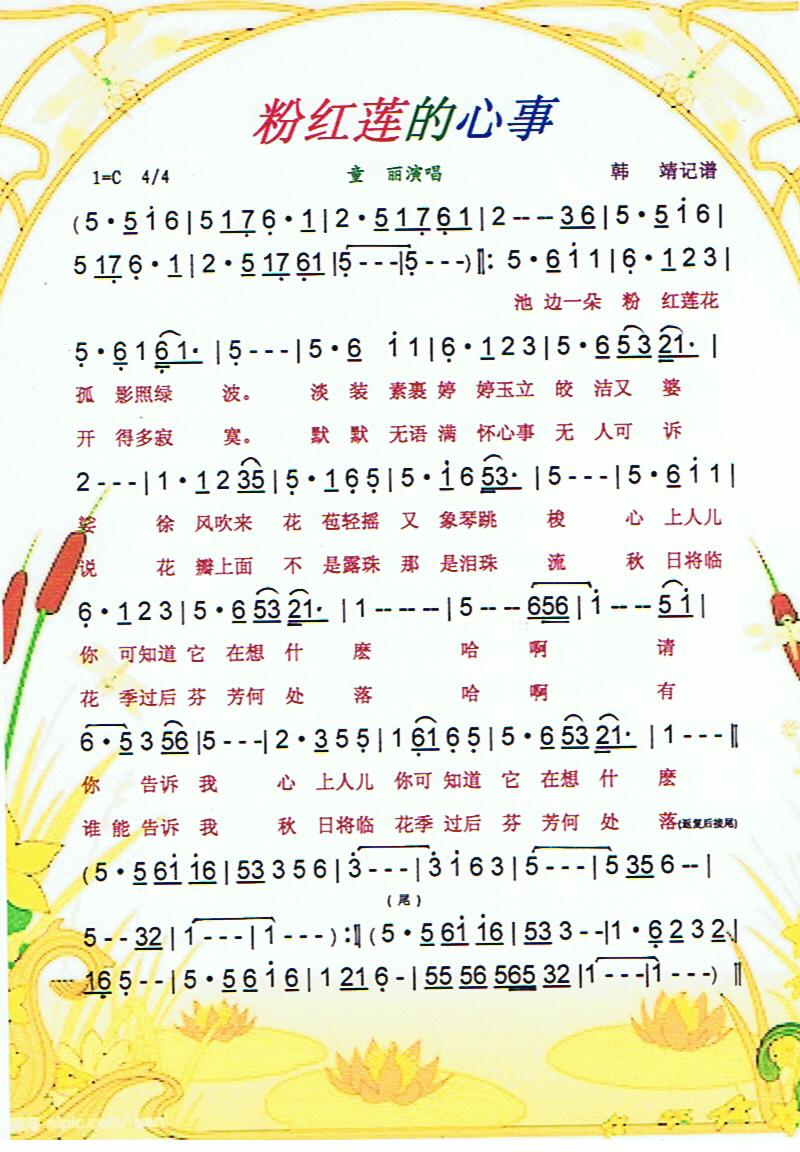 粉红莲的心事
1=C 4/4 童 丽演唱 韩 靖记谱
(5·5i6|5176·1|2·51761|2----36|5·5i6|
5176·1|2·51761|5---|5---)‖:5·6i1|6·123|
池 边一朵 粉 红莲花
5·6161·|5---|5·6i1|6·123|5·65321·|
孤 影照绿 波。 淡 装 素裹 婷 婷玉立 皎 洁又 婆
开 得多寂 寞。 默 默 无语 满 怀心事 无 人可 诉
2---|1·1235|5·165|5·i653·|5---|5·6i1|
娑 徐 风吹来 花 苞轻摇 又 象琴跳 梭 心 上人儿
说 花 瓣上面 不 是露珠 那 是泪珠 流 秋 日将临
6·123|5·65321·|1------|5----656|i----5i|
你 可知道 它 在想 什 麽 哈 啊 请
花 季过后 芬 芳何 处 落 哈 啊 有
6·5356|5---|2·355|16165|5·65321·|1---‖
你 告诉 我 心 上人儿 你可 知道 它 在想 什 麽
谁 能 告诉 我 秋 日将临 花季 过后 芬 芳何 处 落(返复后接尾)
(5·56ii6|53356|3---|3i63|5---|5356--|
(尾)
5--32|1---|1---):‖(5·56ii6|533--|1·6232|
165--|5·56i6|1216-|555656532|1---|1---)‖